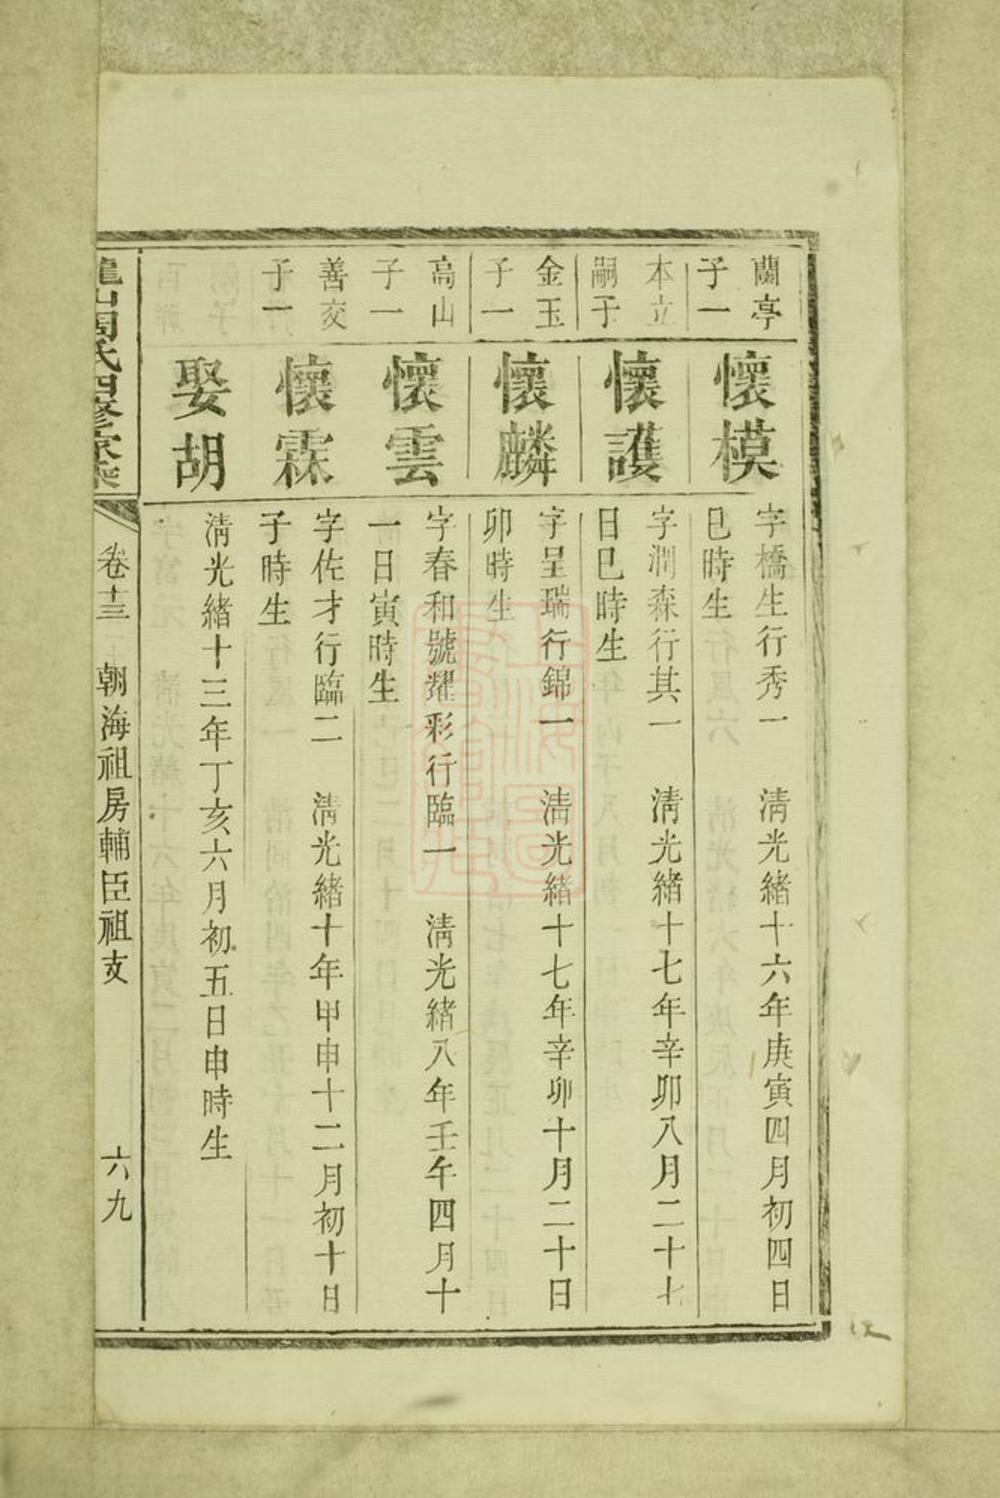 蘭亭
子一
懷模
字橋生行秀一　清光緒十六年庚寅四月初四日
巳時生
本立
嗣子
懷護
字潤森行其一　清光緒十七年辛卯八月二十七
日巳時生
金玉
子一
懷麟
字呈瑞行錦一　清光緒十七年辛卯十月二十日
卯時生
高山
子一
懷雲
字春和號耀彩行臨一　清光緒八年壬午四月十
一日寅時生
善交
子一
懷霖
字佐才行臨二　清光緒十年甲申十二月初十日
子時生
娶胡
清光緒十三年丁亥六月初五日申時生
龍山周氏四修家乘　卷十三　朝海祖房輔臣祖支　六九